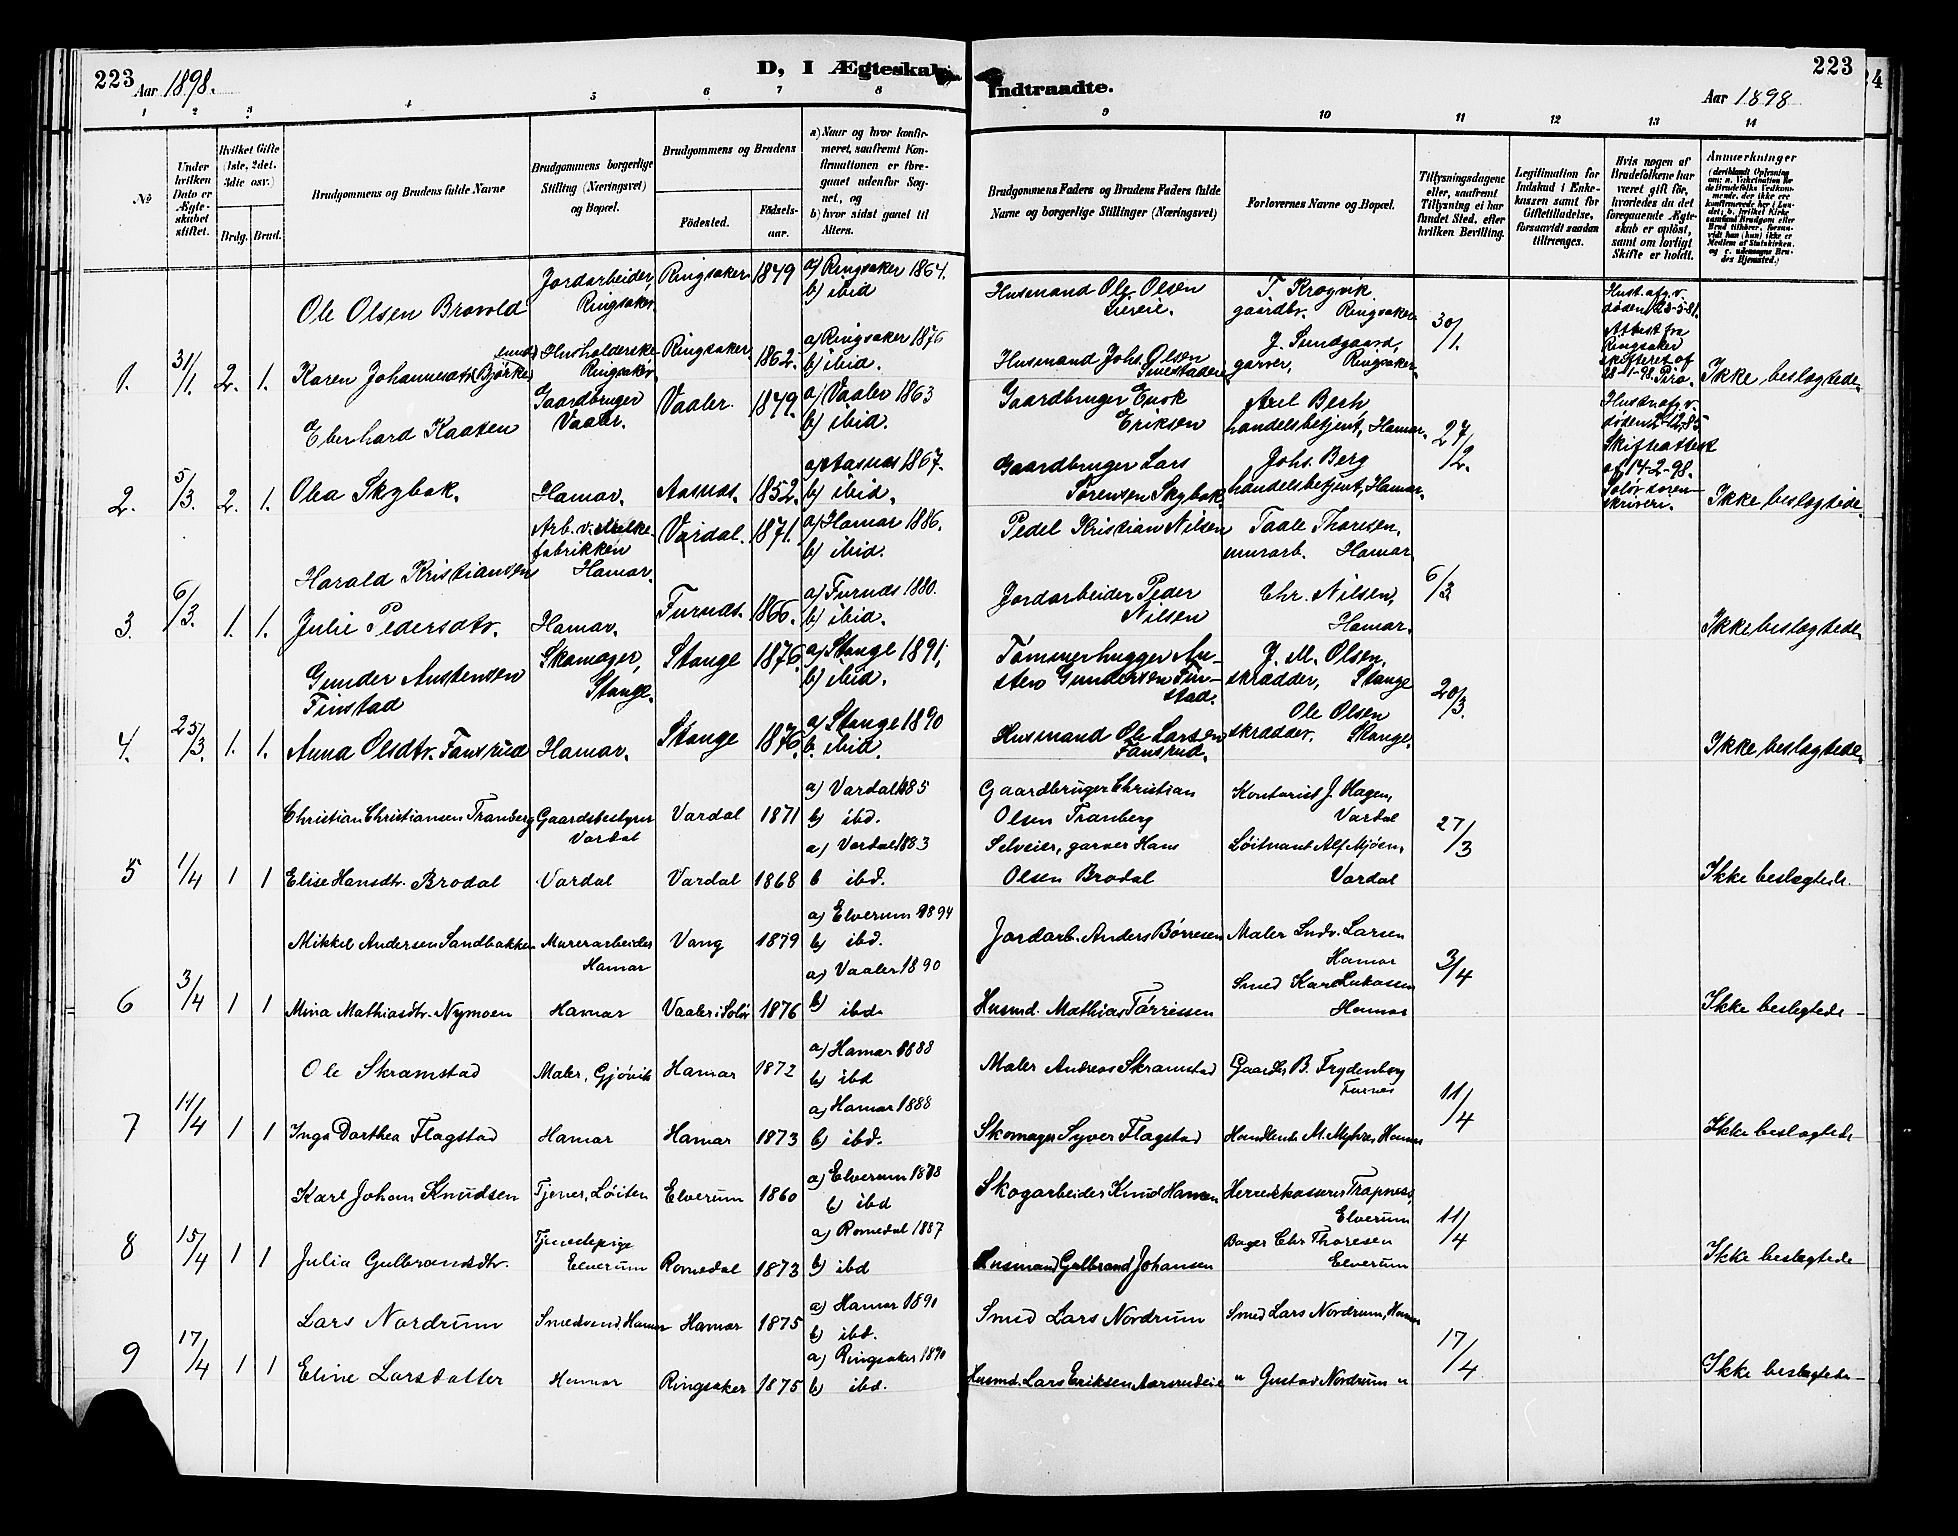 223
Aar 1898.
D, I Ægteskab
Indtraadte.
223
Aar 1898
1 2 3 4 5 6 7 8 9 10 11 12 13 14
No
Under hvilken Dato er Ægteskabet stiftet.
Hvilket Gifte (1ste, 2det, 3die osv.)
Brdg. Brud.
Brudgommens og Brudens fulde Navne
Brudgommens borgerlige Stilling (Næringsvei) og Bopæl.
Brudgommens og Brudens
Fødested.
Fødselsaar.
a) Naar og hvor konfirmeret, saafremt Konfirmationen er foregaaet udenfor Sognet, og
b) hvor sidst gaaet til Alters.
Brudgommens Faders og Brudens Faders fulde Navne og borgerlige Stillinger (Næringsvei)
Forlovernes Navne og Bopæl.
Tillysningsdagene eller, saafremt Tillysning ei har fundet Sted, efter hvilken Bevilling.
Legitimation for Indskud i Enkekassen samt for Giftetilladelse, forsaavidt saadan tiltrænges.
Hvis nogen af Brudefolkene har været gift før, hvorledes da det foregaaende Ægteskab er opløst, samt om lovligt Skifte er holdt.
Anmærkninger
Ole Olsen Brovold
Jordarbeider, Ringsaker.
Ringsaker 1849
a) Ringsaker 1864.
b) ibid
Husmand Ole Olsen Lieeie.
T. Krogvik gaardbr. Ringsaker
30/1.
Hust. afg. v. døden 23-5-81. Attest fra Ringsaker skifteret af 28-1-98.
1. 31/1. 2. 1.
Karen Johannesdtr. Bjørke
Husholderske Ringsaker
Ringsaker 1862.
a) Ringsaker 1876
b) ibid.
Husmand Johs. Olsen
J. Sundgaard, garver, Ringsaker
Ikke beslægtede
Eberhard Kaaten
Gaardbruger Vaaler.
Vaaler. 1849.
a) Vaaler 1863
b) ibid.
Gaardbruger Enok Eriksen
Axel Bech handelsbetjent, Hamar.
27/2.
Hustru afg. v. døden Skifteattest af 14-2-98. Solør sorenskriveri.
2. 5/3. 2. 1.
Oba Skybak.
Hamar.
Aasnes. 1852.
a) Aasnes 1867.
b) ibid.
Gaardbruger Lars Sørensen Skybak
Johs. Berg handelsbetjent, Hamar.
Ikke beslægtede.
Harald Kristiansen
Arb. v. melkefabrikken Hamar.
Vardal. 1871.
a) Hamar 1886.
b) ibid.
Pedel Kristian Nilsen
Taale Thoresen, murarb. Hamar
6/3
3. 6/3. 1. 1.
Julie Pedersdtr.
Hamar.
Furnes. 1866.
a) Furnes 1880.
b) ibid.
Jordarbeider Peder Nilsen
Chr. Nilsen, Hamar.
Ikke beslægtede
Gunder Austensen Finstad
Skomager, Stange.
Stange 1876.
a) Stange 1891,
b) ibid.
Tømmerhugger Austen Gundersen Finstad.
J. M. Olsen, skrædder, Stange
20/3.
4. 25/3. 1. 1.
Anna Olsdtr. Fansrud
Hamar.
Stange 1876.
a) Stange 1890
b. ibid.
Husmand Ole Larsen Fansrud.
Ole Olsen skrædder. Stange.
Ikke beslægtede.
Christian Christiansen Tranberg
Gaardsbestyrer Vardal
Vardal 1871
a) Vardal 1885
b) ibd.
Gaardbruger Christian Olsen Tranberg
Kontorist J. Hagen, Vardal
27/3
5 1/4 1 1
Elise Hansdtr. Brodal
Vardal
Vardal 1868
a) Vardal 1883
b ibd.
Selveier, garver Hans Olsen Brodal
Løitnant Alf Mjøen, Vardal
Ikke beslægtede.
Mikkel Andersen Sandbakken
Murerarbeider Hamar
Vang 1879
a) Elverum 1894
b) ibd.
Jordarb. Anders Børresen
Maler Ludv. Larsen Hamar
3/4
6 3/4 1 1
Mina Mathiasdtr. Nymoen
Hamar
Vaaler i Solør 1876
a) Vaaler 1890
b) ibd.
Husmd. Mathias Tørrissen
Smed Karl Lukasen Hamar
Ikke beslægtede
Ole Skramstad
Maler, Gjøvik
Hamar 1872
a) Hamar 1888
b) ibd
Maler Andreas Skramstad
Gaardbr B. Frydenberg Furnes
11/4
7 11/4 1 1
Inga Dorthea Flagstad
Hamar
Hamar 1873
a) Hamar 1888
b) ibd.
Skomager Syver Flagstad
Handlende M. Myhre, Hamar
Ikke beslægtede
Karl Johan Knudsen
Tjener, Løiten
Elverum 1860
a) Elverum 1878
b) ibd
Skogarbeider Knud Hansen
Herredskasserer Trapness, Elverum
11/4
8 15/4 1 1
Julia Gulbrandsdtr.
Tjenestepige Elverum
Romedal 1873
a) Romedal 1887
b) ibd
Husmand Gulbrand Johansen
Bager Chr Thoresen Elverum
Ikke beslægtede
Lars Nordrum
Smedsvend, Hamar
Hamar 1875
a) Hamar 1890
b) ibd.
Smed Lars Nordrum
Smed Lars Nordrum, Hamar
17/4
9 17/4 1 1
Eline Larsdatter
Hamar
Ringsaker 1875
a) Ringsaker 1890
b) ibd.
Husmd. Lars Eriksen Aasrudeie
" Gustav Nordrum "
Ikke beslægtede